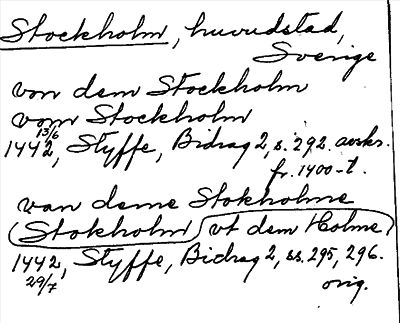 Stockholm, huvudstad,
Sverige
von dem Stockholm
vom Stockholm
13/6
1442, Styffe, Bidrag 2, s. 292. avskr.
fr. 1400-t.
van deme Stokholme
(Stokholm vt dem Holme)
1442, Styffe, Bidrag 2, ss. 295, 296.
29/7 orig.